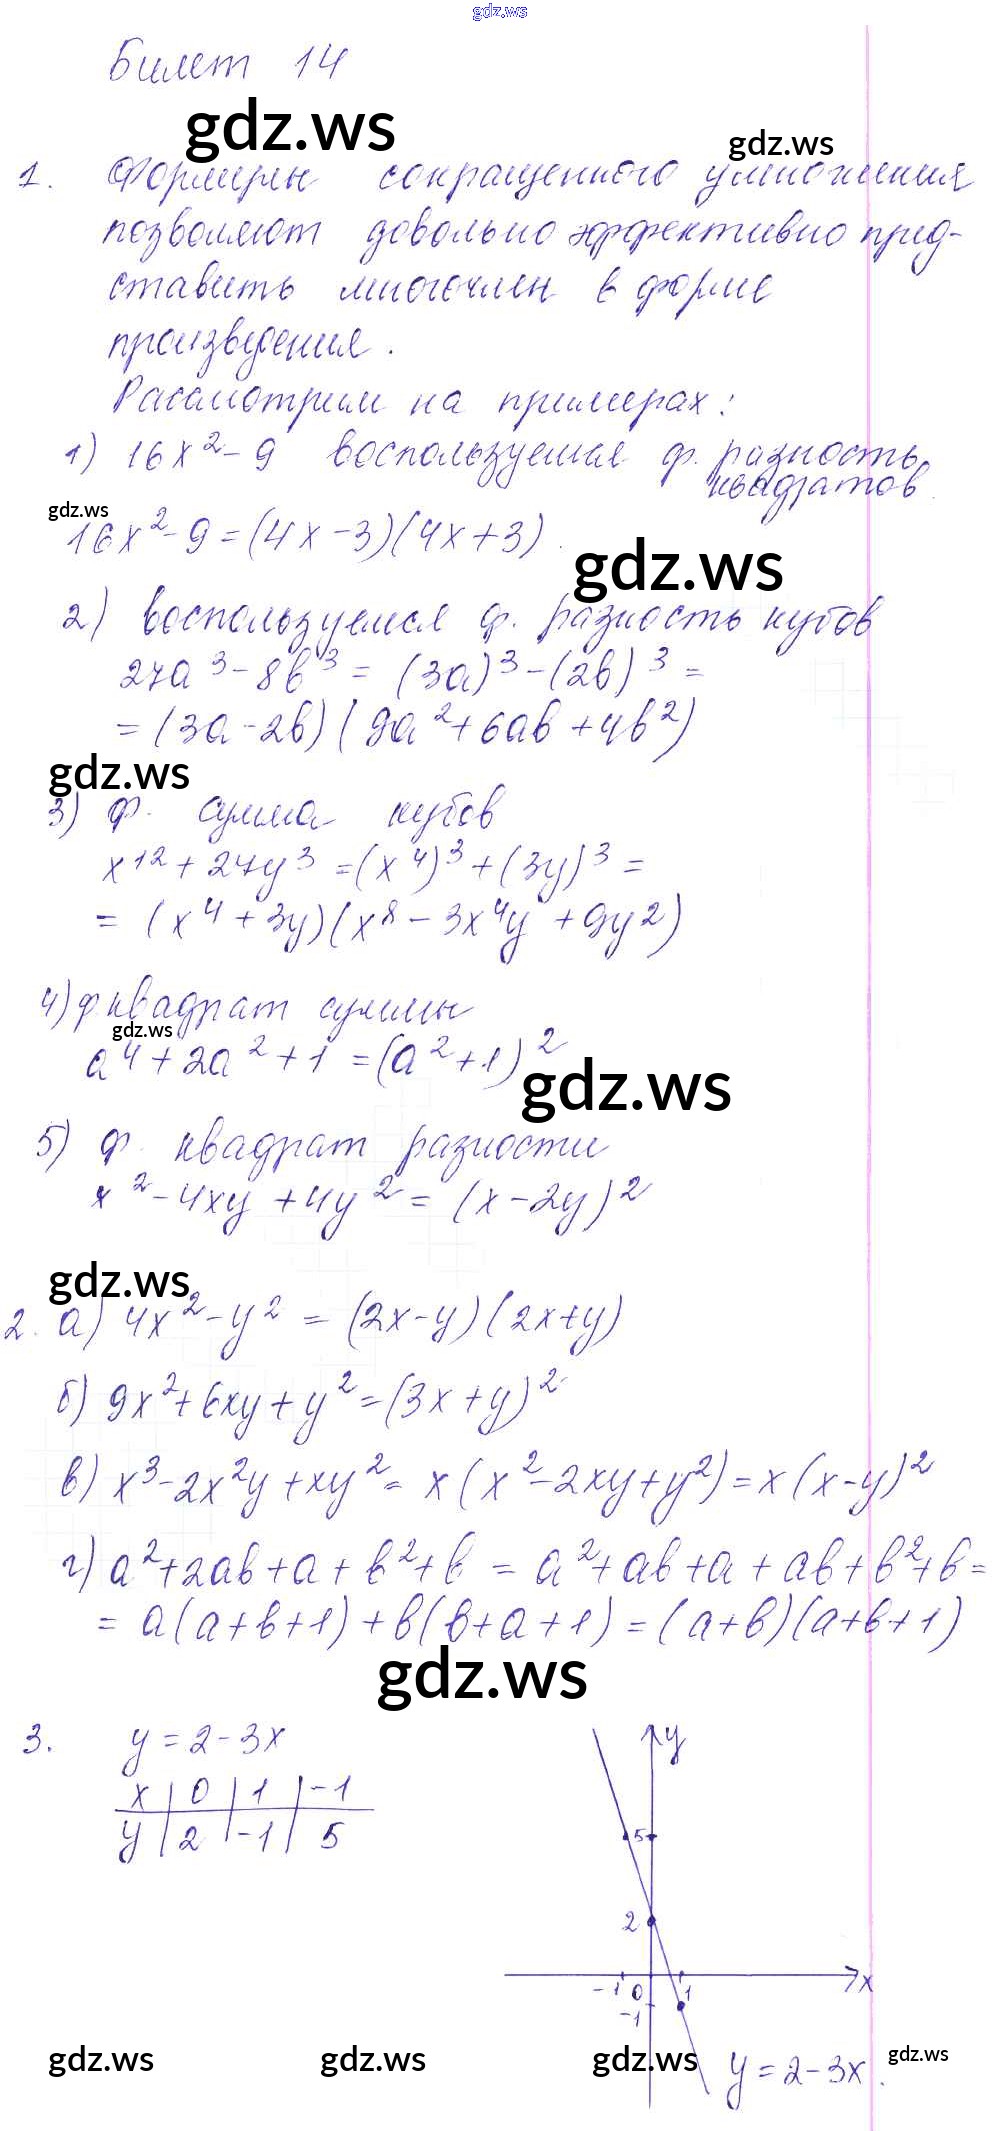 gdz.ws
Билет 14
gdz.ws
gdz.ws
1. Формулы сокращенного умножения
позволяют довольно эффективно пред-
ставить многочлен в форме
произведения.
Рассмотрим на примерах:
1) 16x² - 9 воспользуемся ф. разность
квадратов.
gdz.ws
16x² - 9 = (4x - 3)(4x + 3).
gdz.ws
2) воспользуемся ф. разность кубов
27a³ - 8b³ = (3a)³ - (2b)³ =
= (3a - 2b)(9a² + 6ab + 4b²)
gdz.ws
3) ф. сумма кубов
x¹² + 27y³ = (x⁴)³ + (3y)³ =
= (x⁴ + 3y)(x⁸ - 3x⁴y + 9y²)
4) ф. квадрат суммы
gdz.ws
a⁴ + 2a² + 1 = (a² + 1)²
gdz.ws
5) ф. квадрат разности
x² - 4xy + 4y² = (x - 2y)²
gdz.ws
2. а) 4x² - y² = (2x - y)(2x + y)
б) 9x² + 6xy + y² = (3x + y)²
в) x³ - 2x²y + xy² = x(x² - 2xy + y²) = x(x - y)²
г) a² + 2ab + a + b² + b = a² + ab + a + ab + b² + b =
= a(a + b + 1) + b(b + a + 1) = (a + b)(a + b + 1)
gdz.ws
3. y = 2 - 3x
x 0 1 -1
y 2 -1 5
y
5
2
-1 0 1 x
-1
y = 2 - 3x.
gdz.ws gdz.ws gdz.ws gdz.ws